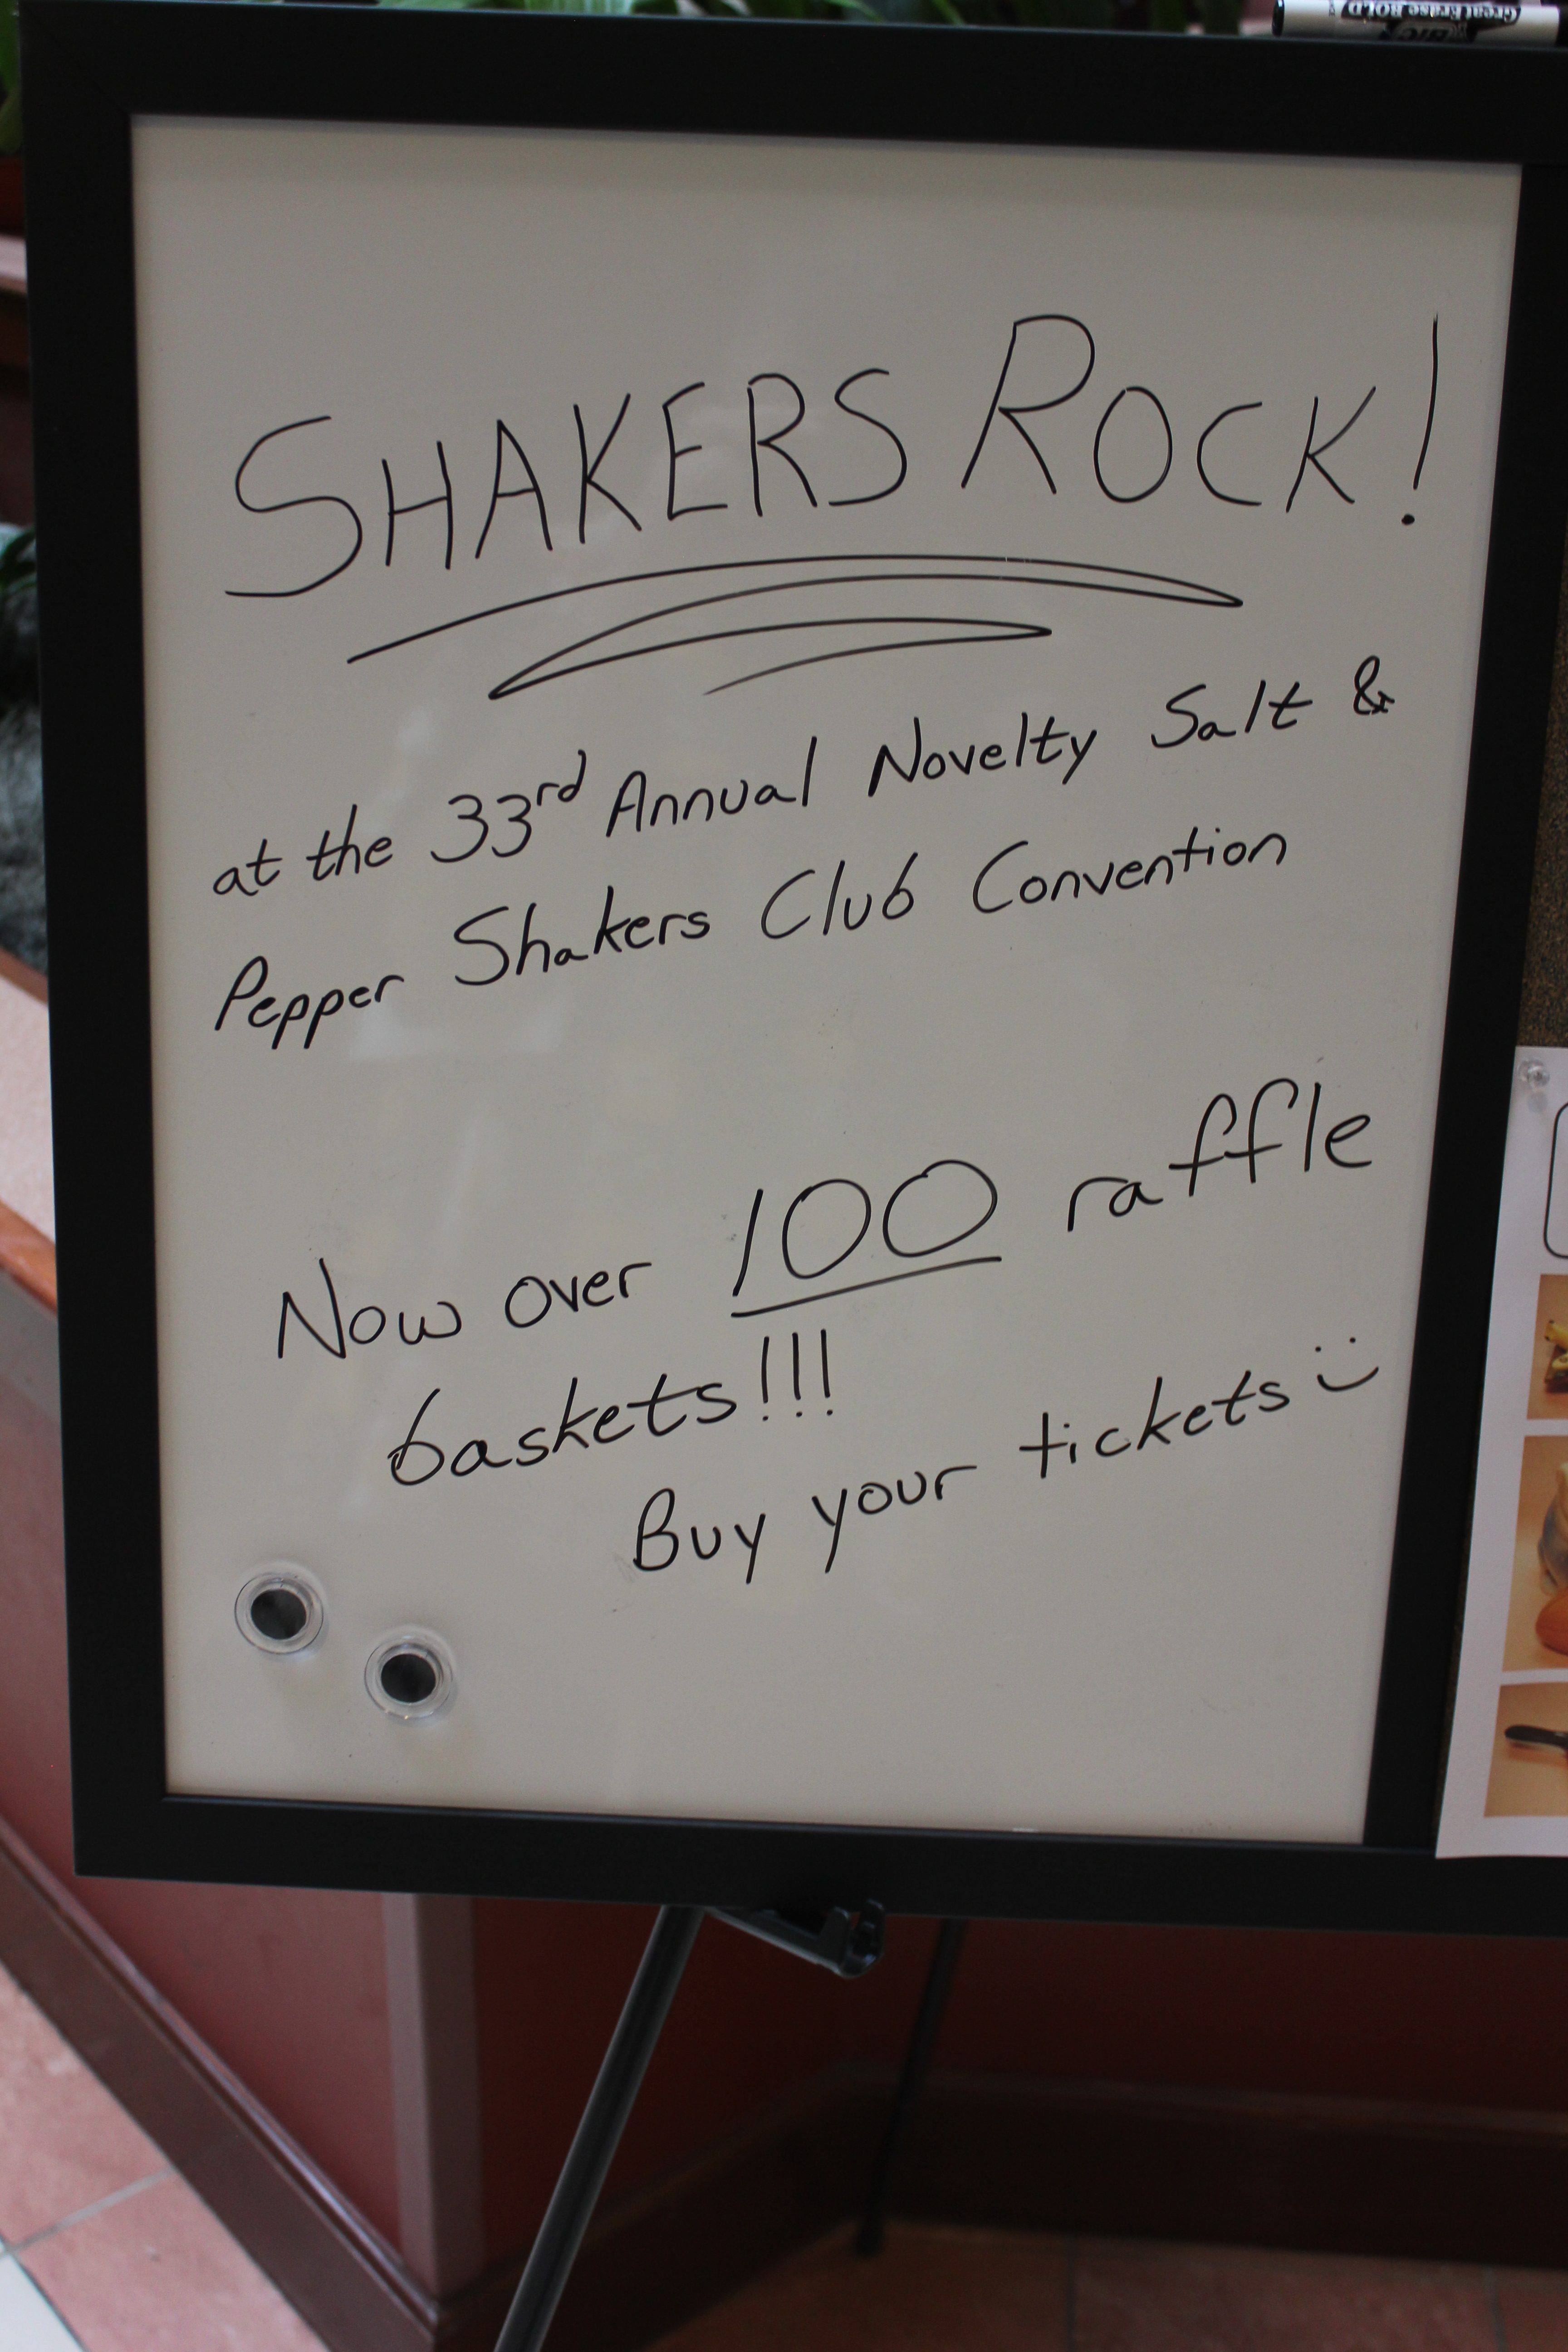 Great Erase BOLD
BIC
SHAKERS ROCK!
at the 33rd Annual Novelty Salt &
Pepper Shakers Club Convention
Now over 100 raffle
baskets!!!
Buy your tickets :)